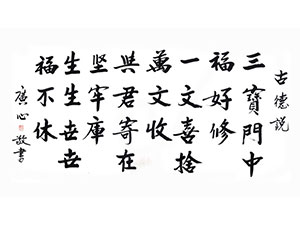 古德説
三寶門中
福好修
一文喜捨
萬文收
與君寄在
堅牢庫
生生世世
福不休
廣心敬書